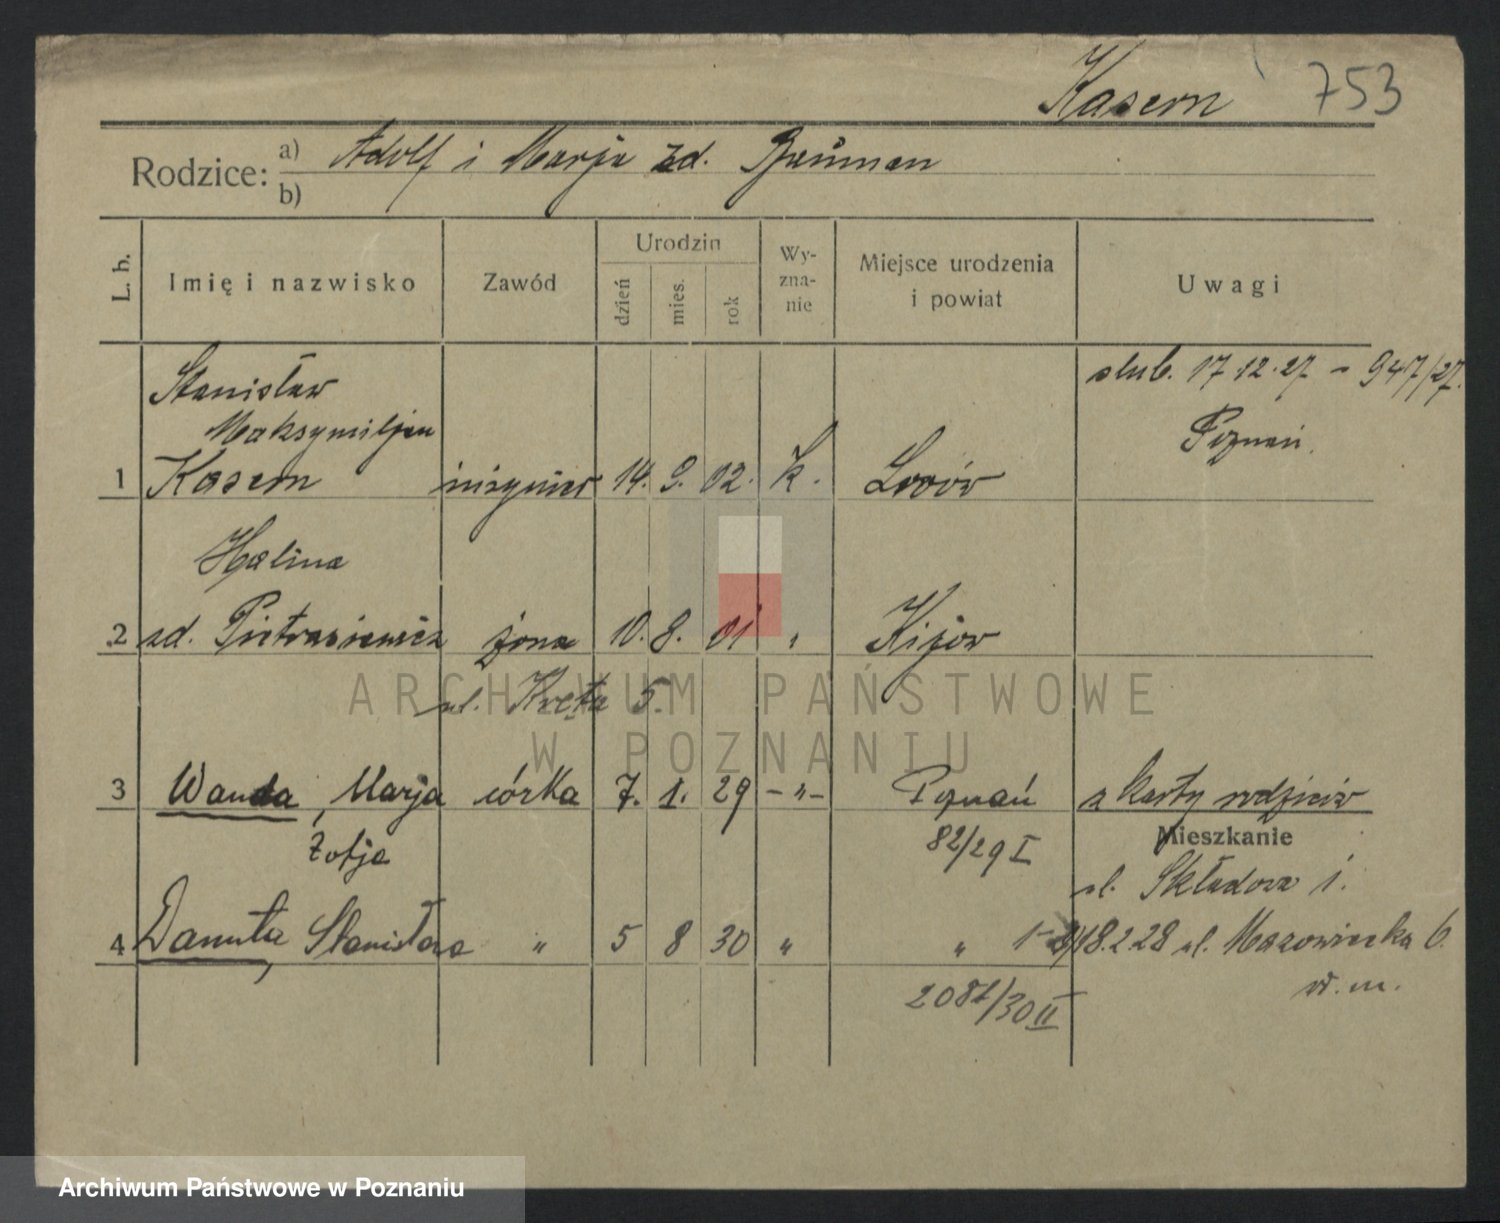 Kasern 753
Rodzice: a) Adolf i Marja zd. Bauman
b)
L. b. Imię i nazwisko Zawód Urodzin dzień mies. rok Wy-zna-nie Miejsce urodzenia i powiat Uwagi
Stanisław ślub. 17.12.27 - 947/27.
Maksymiljan Poznań.
1 Kasern inżynier 14. 9. 02. k. Lwów
Halina
2 zd. Pietrasiewicz żona 10. 8. 01 " Kijów
ul. Kręta 5.
ARCHIWUM PAŃSTWOWE
W POZNANIU
3 Wanda, Marja córka 7. 1. 29 -"- Poznań z karty rodziców
Zofja 82/29 I Mieszkanie
ul. Składowa 1.
4 Danuta, Stanisława " 5 8 30 " " 18.2.28 ul. Mazowiecka 6.
w. m.
2081/30 II
Archiwum Państwowe w Poznaniu